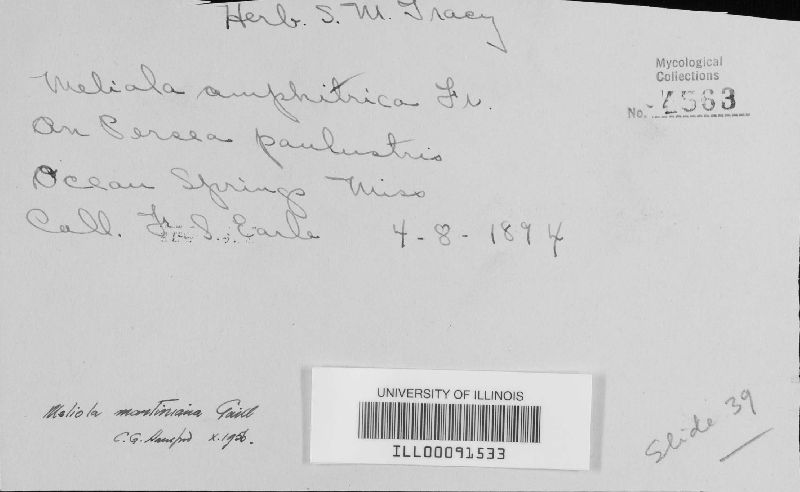 Herb. S. M. Tracy
Meliola amphitrica Fr.
On Persea paulustris
Ocean Springs Miss
Coll. Fr. S. Earle 4-8-1894
Mycological
Collections
No. 4563
Meliola martiniana Gaill
C.G. x.1956.
UNIVERSITY OF ILLINOIS
ILL00091533
Slide 39